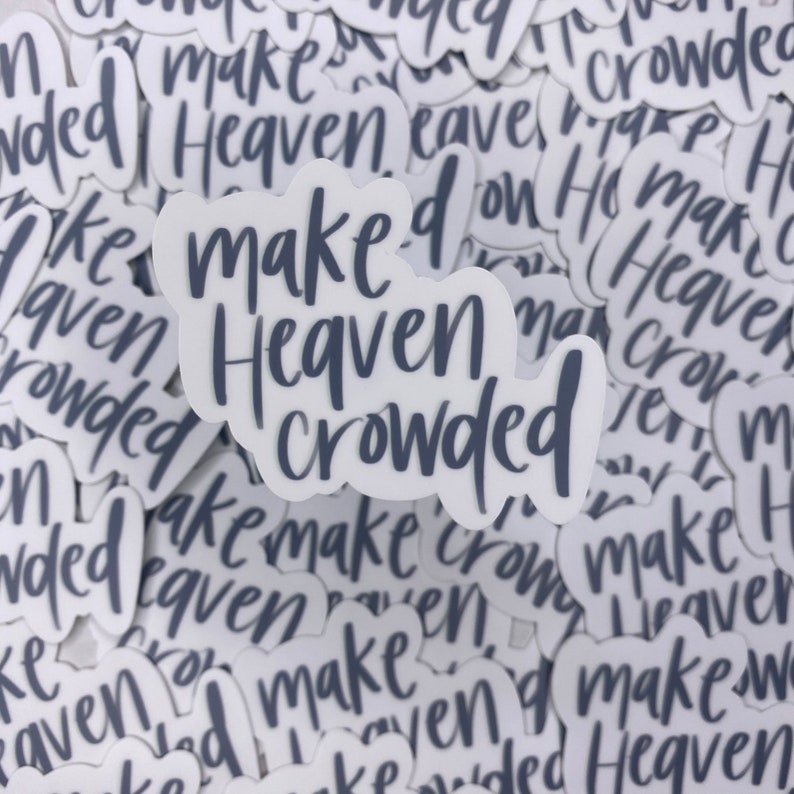 make
Heaven
crowded